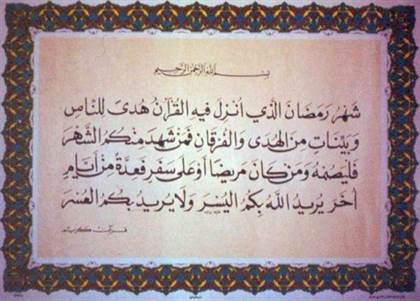 بسم الله الرحمن الرحيم
شَهْرُ رَمَضَانَ الَّذِي أُنْزِلَ فِيهِ الْقُرْآنُ هُدًى لِلنَّاسِ
وَبَيِّنَاتٍ مِنَ الْهُدَى وَالْفُرْقَانِ فَمَنْ شَهِدَ مِنْكُمُ الشَّهْرَ
فَلْيَصُمْهُ وَمَنْ كَانَ مَرِيضًا أَوْ عَلَى سَفَرٍ فَعِدَّةٌ مِنْ أَيَّامٍ
أُخَرَ يُرِيدُ اللَّهُ بِكُمُ الْيُسْرَ وَلَا يُرِيدُ بِكُمُ الْعُسْرَ
قرآن كريم